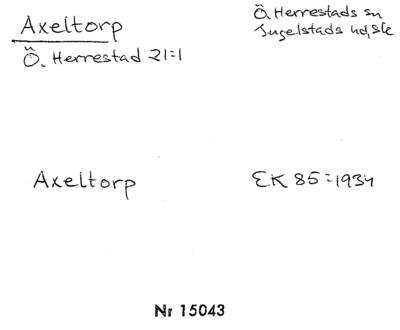 Axeltorp
Ö. Herrestad 21:1
Ö. Herrestads sn
Ingelstads hd, Sk
Axeltorp
EK 85 : 1934
Nr 15043